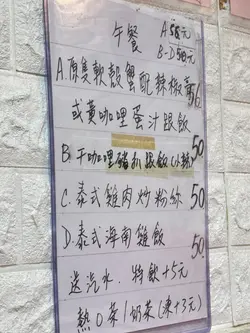 午餐 A.56元
B-D 50元
A.原隻軟殼蟹配辣椒膏 56
或黃咖哩蛋汁跟飯
B.干咖哩豬扒跟飯(小辣) 50
C.泰式雞肉炒粉絲 50
D.泰式海南雞飯 50
送汽水.特飲+5元
熱0茶/奶茶(凍+3元)